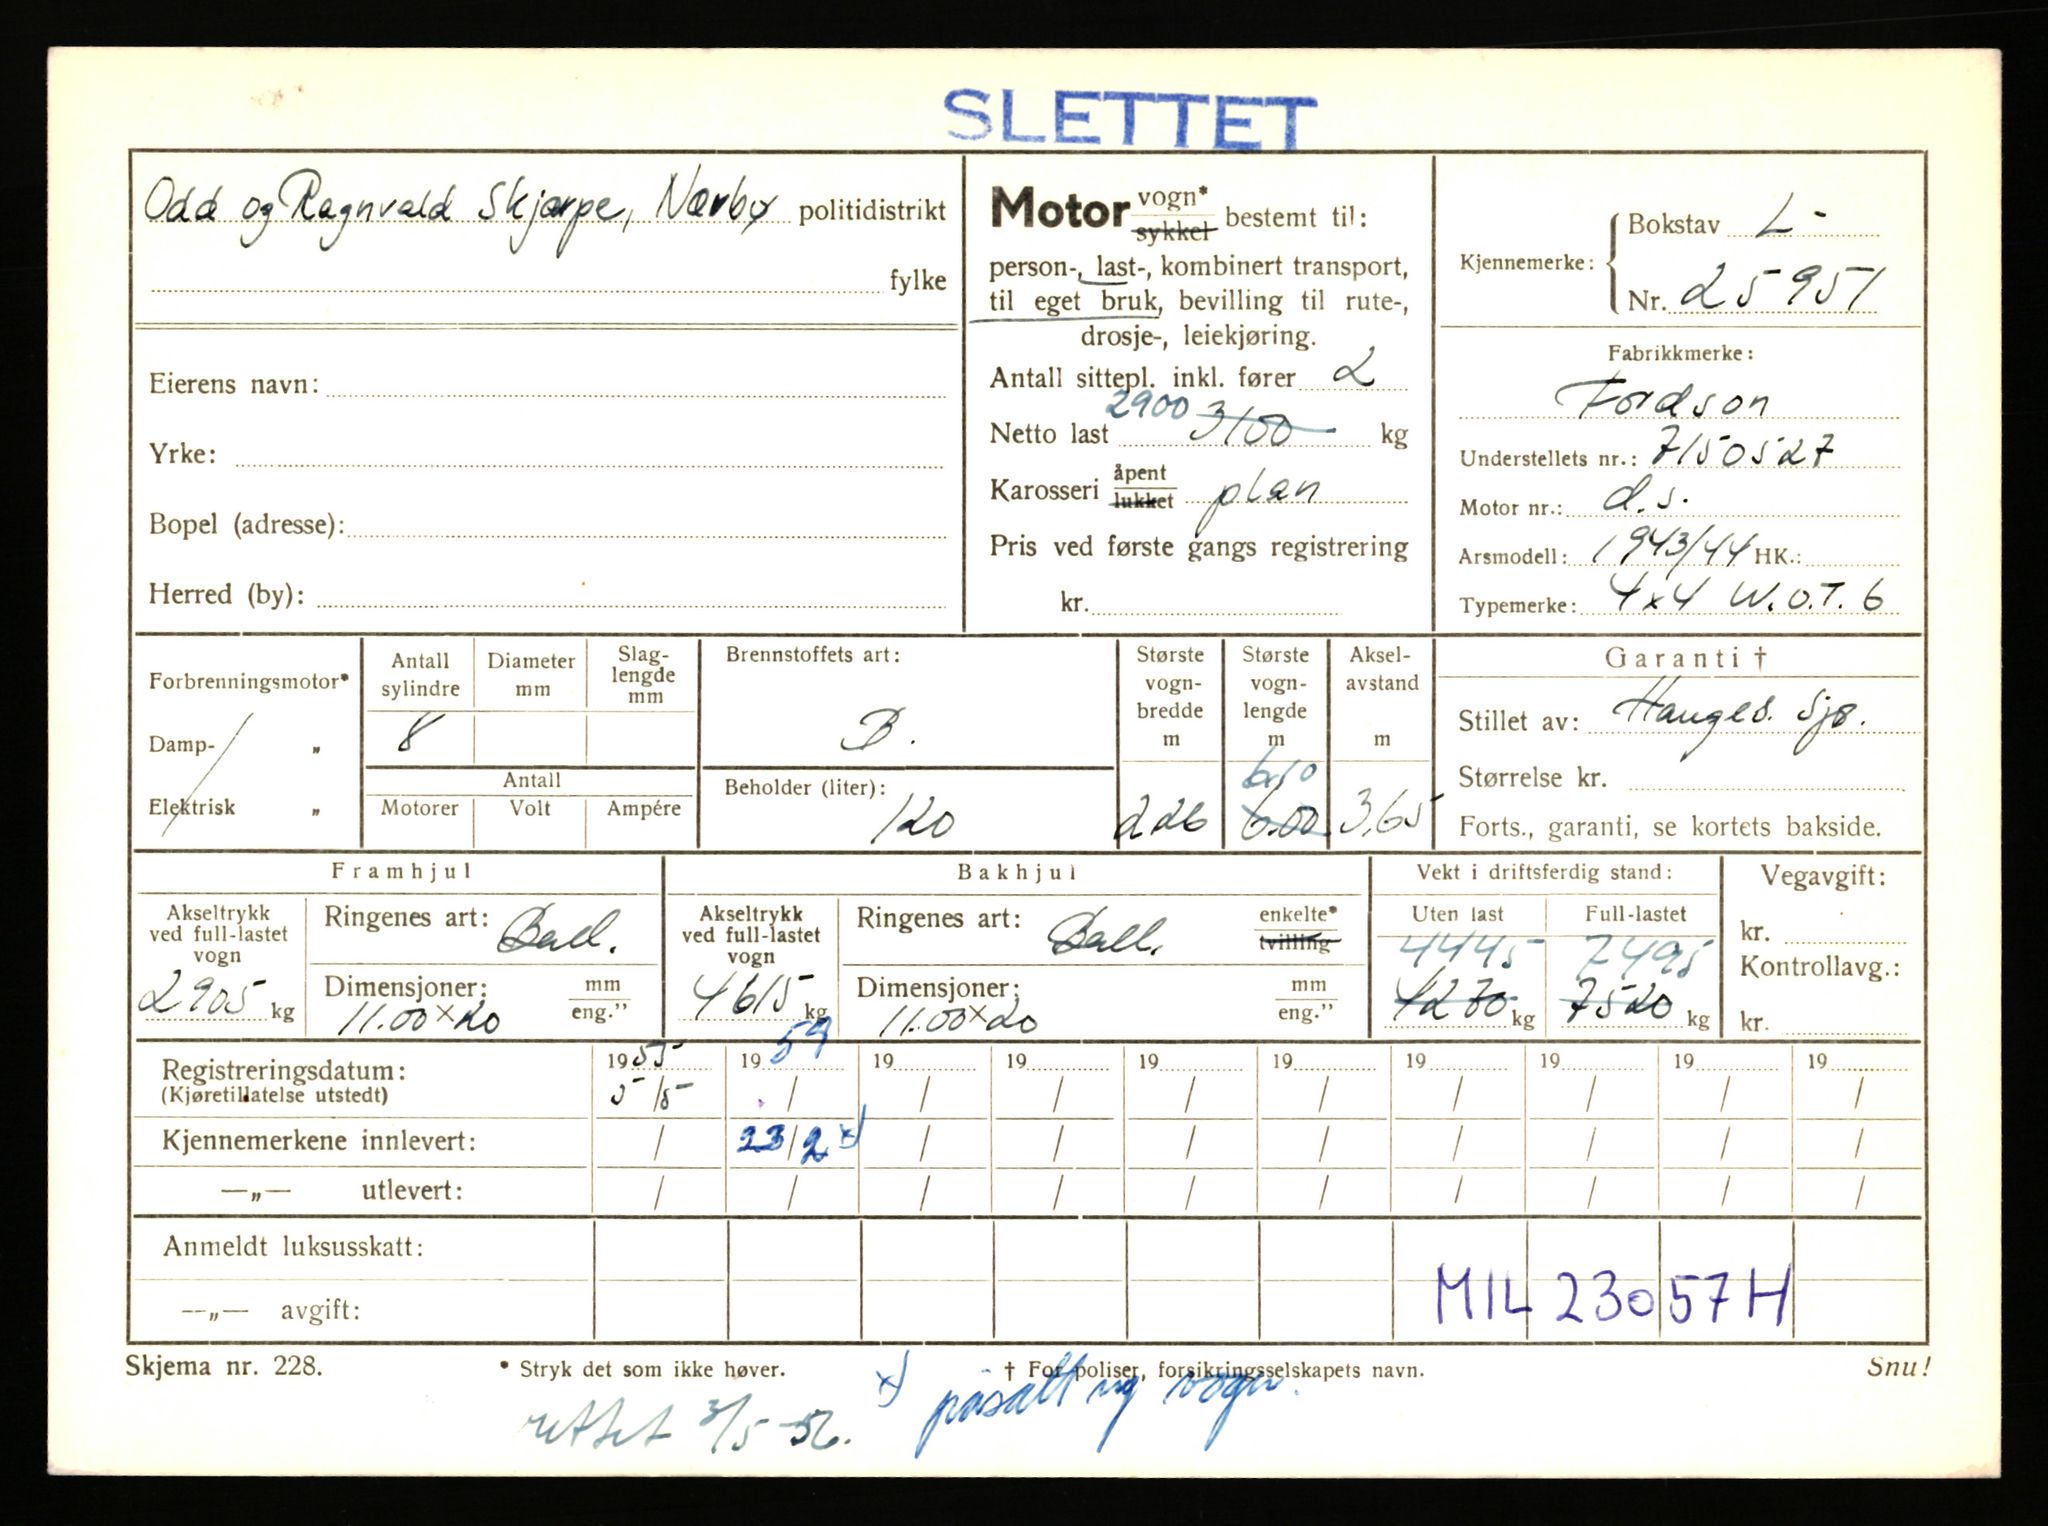 SLETTET
Odd og Ragnvald Skjærpe, Nærbø politidistrikt
fylke
Eierens navn:
Yrke:
Bopel (adresse):
Herred (by):
Motor vogn* sykkel bestemt til:
person-, last-, kombinert transport,
til eget bruk, bevilling til rute-,
drosje-, leiekjøring.
Antall sittepl. inkl. fører 2
Netto last 2900 3100 kg
Karosseri åpent lukket plan
Pris ved første gangs registrering
kr.
Kjennemerke: Bokstav L-
Nr. 25951
Fabrikkmerke:
Fordson
Understellets nr.: 7150527
Motor nr.: d.s.
Arsmodell: 1943/44 HK.:
Typemerke: 4x4 W.O.T. 6
Forbrenningsmotor*
Damp- "
Elektrisk "
Antall sylindre
Diameter mm
Slag-lengde mm
8
Antall
Motorer Volt Ampére
Brennstoffets art:
B.
Beholder (liter):
120
Største vogn-bredde m
226
Største vogn-lengde m
6.10
6.00
Aksel-avstand m
3,65
Garanti †
Stillet av: Hauges. Sjø.
Størrelse kr.
Forts., garanti, se kortets bakside.
Framhjul
Akseltrykk ved full-lastet vogn
2905 kg
Ringenes art: Ball.
Dimensjoner: mm eng."
11.00 x 20
Bakhjul
Akseltrykk ved full-lastet vogn
4615 kg
Ringenes art: Ball. enkelte* tvilling
Dimensjoner: mm eng."
11.00 x 20
Vekt i driftsferdig stand:
Uten last Full-lastet
4445 7495
4270 kg 7520 kg
Vegavgift:
kr.
Kontrollavg.:
kr.
Registreringsdatum: 1955 1959 19 19 19 19 19 19 19 19
(Kjøretillatelse utstedt) 5/5 / / / / / / / / /
Kjennemerkene innlevert: / 23/2 x) / / / / / / / /
—„— utlevert: / / / / / / / / / /
Anmeldt luksusskatt:
—„— avgift:
MIL 23057H
Skjema nr. 228. * Stryk det som ikke høver. † For poliser, forsikringsselskapets navn. Snu!
x) påsatt ny vogn.
rettet 3/5-56.